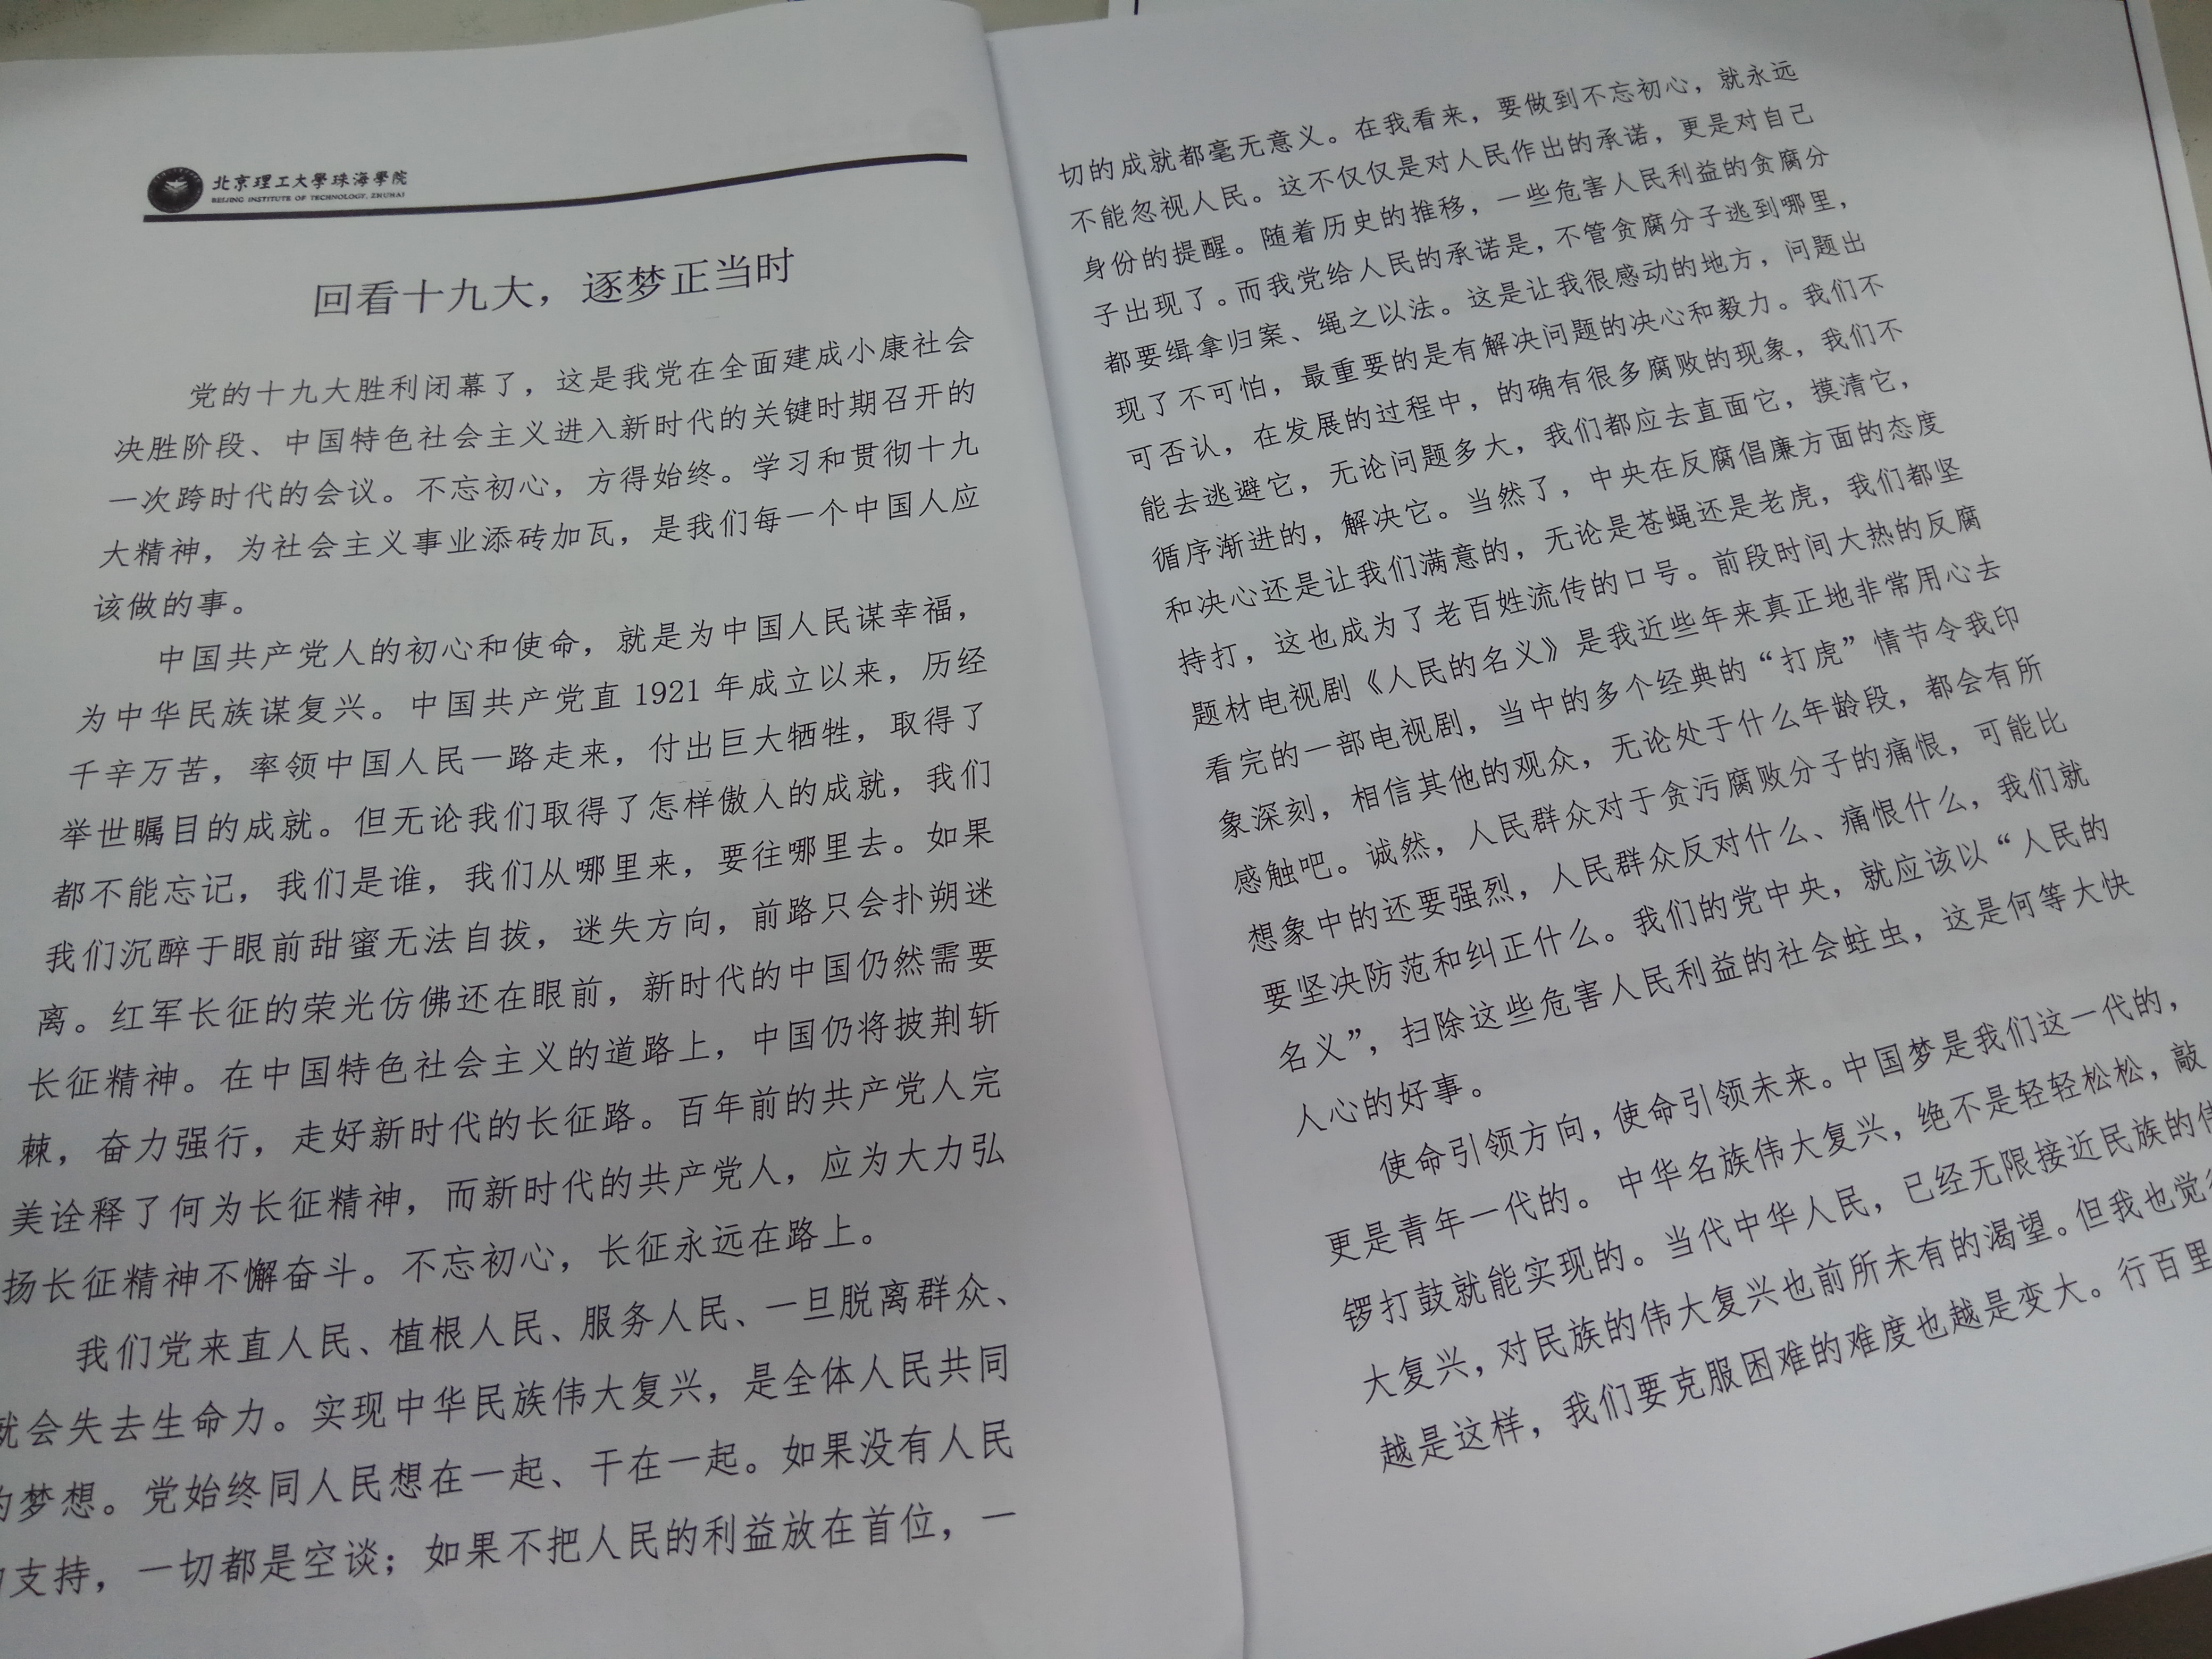 北京理工大學珠海學院
BEIJING INSTITUTE OF TECHNOLOGY, ZHUHAI
回看十九大，逐梦正当时
党的十九大胜利闭幕了，这是我党在全面建成小康社会
决胜阶段、中国特色社会主义进入新时代的关键时期召开的
一次跨时代的会议。不忘初心，方得始终。学习和贯彻十九
大精神，为社会主义事业添砖加瓦，是我们每一个中国人应
该做的事。
中国共产党人的初心和使命，就是为中国人民谋幸福，
为中华民族谋复兴。中国共产党直 1921 年成立以来，历经
千辛万苦，率领中国人民一路走来，付出巨大牺牲，取得了
举世瞩目的成就。但无论我们取得了怎样傲人的成就，我们
都不能忘记，我们是谁，我们从哪里来，要往哪里去。如果
我们沉醉于眼前甜蜜无法自拔，迷失方向，前路只会扑朔迷
离。红军长征的荣光仿佛还在眼前，新时代的中国仍然需要
长征精神。在中国特色社会主义的道路上，中国仍将披荆斩
棘，奋力强行，走好新时代的长征路。百年前的共产党人完
美诠释了何为长征精神，而新时代的共产党人，应为大力弘
扬长征精神不懈奋斗。不忘初心，长征永远在路上。
我们党来直人民、植根人民、服务人民、一旦脱离群众、
就会失去生命力。实现中华民族伟大复兴，是全体人民共同
的梦想。党始终同人民想在一起、干在一起。如果没有人民
的支持，一切都是空谈；如果不把人民的利益放在首位，一
切的成就都毫无意义。在我看来，要做到不忘初心，就永远
不能忽视人民。这不仅仅是对人民作出的承诺，更是对自己
身份的提醒。随着历史的推移，一些危害人民利益的贪腐分
子出现了。而我党给人民的承诺是，不管贪腐分子逃到哪里，
都要缉拿归案、绳之以法。这是让我很感动的地方，问题出
现了不可怕，最重要的是有解决问题的决心和毅力。我们不
可否认，在发展的过程中，的确有很多腐败的现象，我们不
能去逃避它，无论问题多大，我们都应去直面它，摸清它，
循序渐进的，解决它。当然了，中央在反腐倡廉方面的态度
和决心还是让我们满意的，无论是苍蝇还是老虎，我们都坚
持打，这也成为了老百姓流传的口号。前段时间大热的反腐
题材电视剧《人民的名义》是我近些年来真正地非常用心去
看完的一部电视剧，当中的多个经典的“打虎”情节令我印
象深刻，相信其他的观众，无论处于什么年龄段，都会有所
感触吧。诚然，人民群众对于贪污腐败分子的痛恨，可能比
想象中的还要强烈，人民群众反对什么、痛恨什么，我们就
要坚决防范和纠正什么。我们的党中央，就应该以“人民的
名义”，扫除这些危害人民利益的社会蛀虫，这是何等大快
人心的好事。
使命引领方向，使命引领未来。中国梦是我们这一代的，
更是青年一代的。中华名族伟大复兴，绝不是轻轻松松，敲
锣打鼓就能实现的。当代中华人民，已经无限接近民族的伟
大复兴，对民族的伟大复兴也前所未有的渴望。但我也觉
越是这样，我们要克服困难的难度也越是变大。行百里